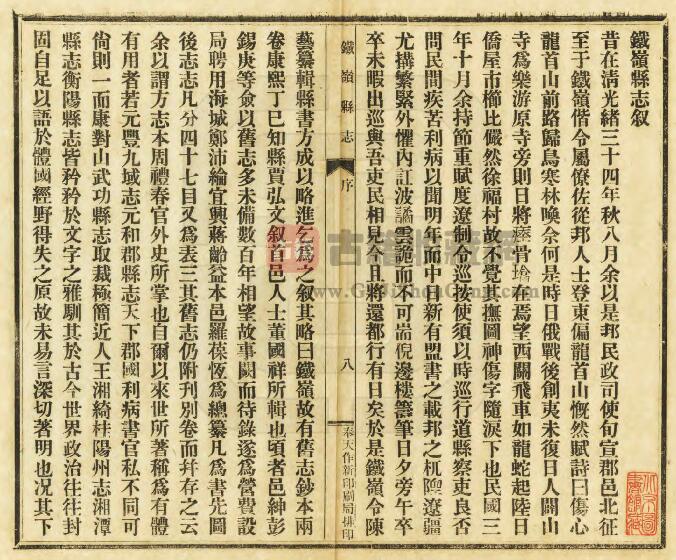 鐵嶺縣志叙
昔在清光緒三十四年秋八月余以是邦民政司使旬宣郡邑北征
至于鐵嶺偕令屬僚佐從邦人士登東偏龍首山慨然賦詩曰傷心
龍首山前路歸鳥寒林喚奈何是時日俄戰後創夷未復日人闢山
寺為樂游原寺旁則日將瘞骨塔在焉望西關飛車如龍蛇起陸日
僑屋市櫛比儼然徐福村故不覺其撫圖神傷字隨淚下也民國三
年十月余持節重賦度遼制令巡按使須以時巡行道縣察吏良否
問民間疾苦利病以聞明年而中日新有盟書之載邦之杌隉遼疆
尤搆繁緊外懼內訌波譎雲詭而不可耑倪邊樓籌筆日夕旁午卒
卒未暇出巡與吾吏民相見今且將還都行有日矣於是鐵嶺令陳
鐵嶺縣志
序
八
奉天作新印刷局排印
藝纂輯縣書方成以略進乞為之叙其略曰鐵嶺故有舊志鈔本兩
卷康熙丁巳知縣賈弘文叙首邑人士董國祥所輯也頃者邑紳彭
錫庚等僉以舊志多未備數百年相望故事闕而待錄遂為營費設
局聘用海城鄭沛綸宜興蔣齡益本邑羅葆恆為總纂凡為書先圖
後志志凡分四十七目又為表三其舊志仍附刊別卷而幷存之云
余以謂方志本周禮春官外史所掌也自爾以來世所著稱為有體
有用者若元豐九域志元和郡縣志天下郡國利病書官私不同可
尙則一而康對山武功縣志取裁極簡近人王湘綺桂陽州志湘潭
縣志衡陽縣志皆矜矜於文字之雅馴其於古今世界政治往往封
固自足以語於體國經野得失之原故未易言深切著明也况其下
古籍收藏网
www.GuJiShouCang.com